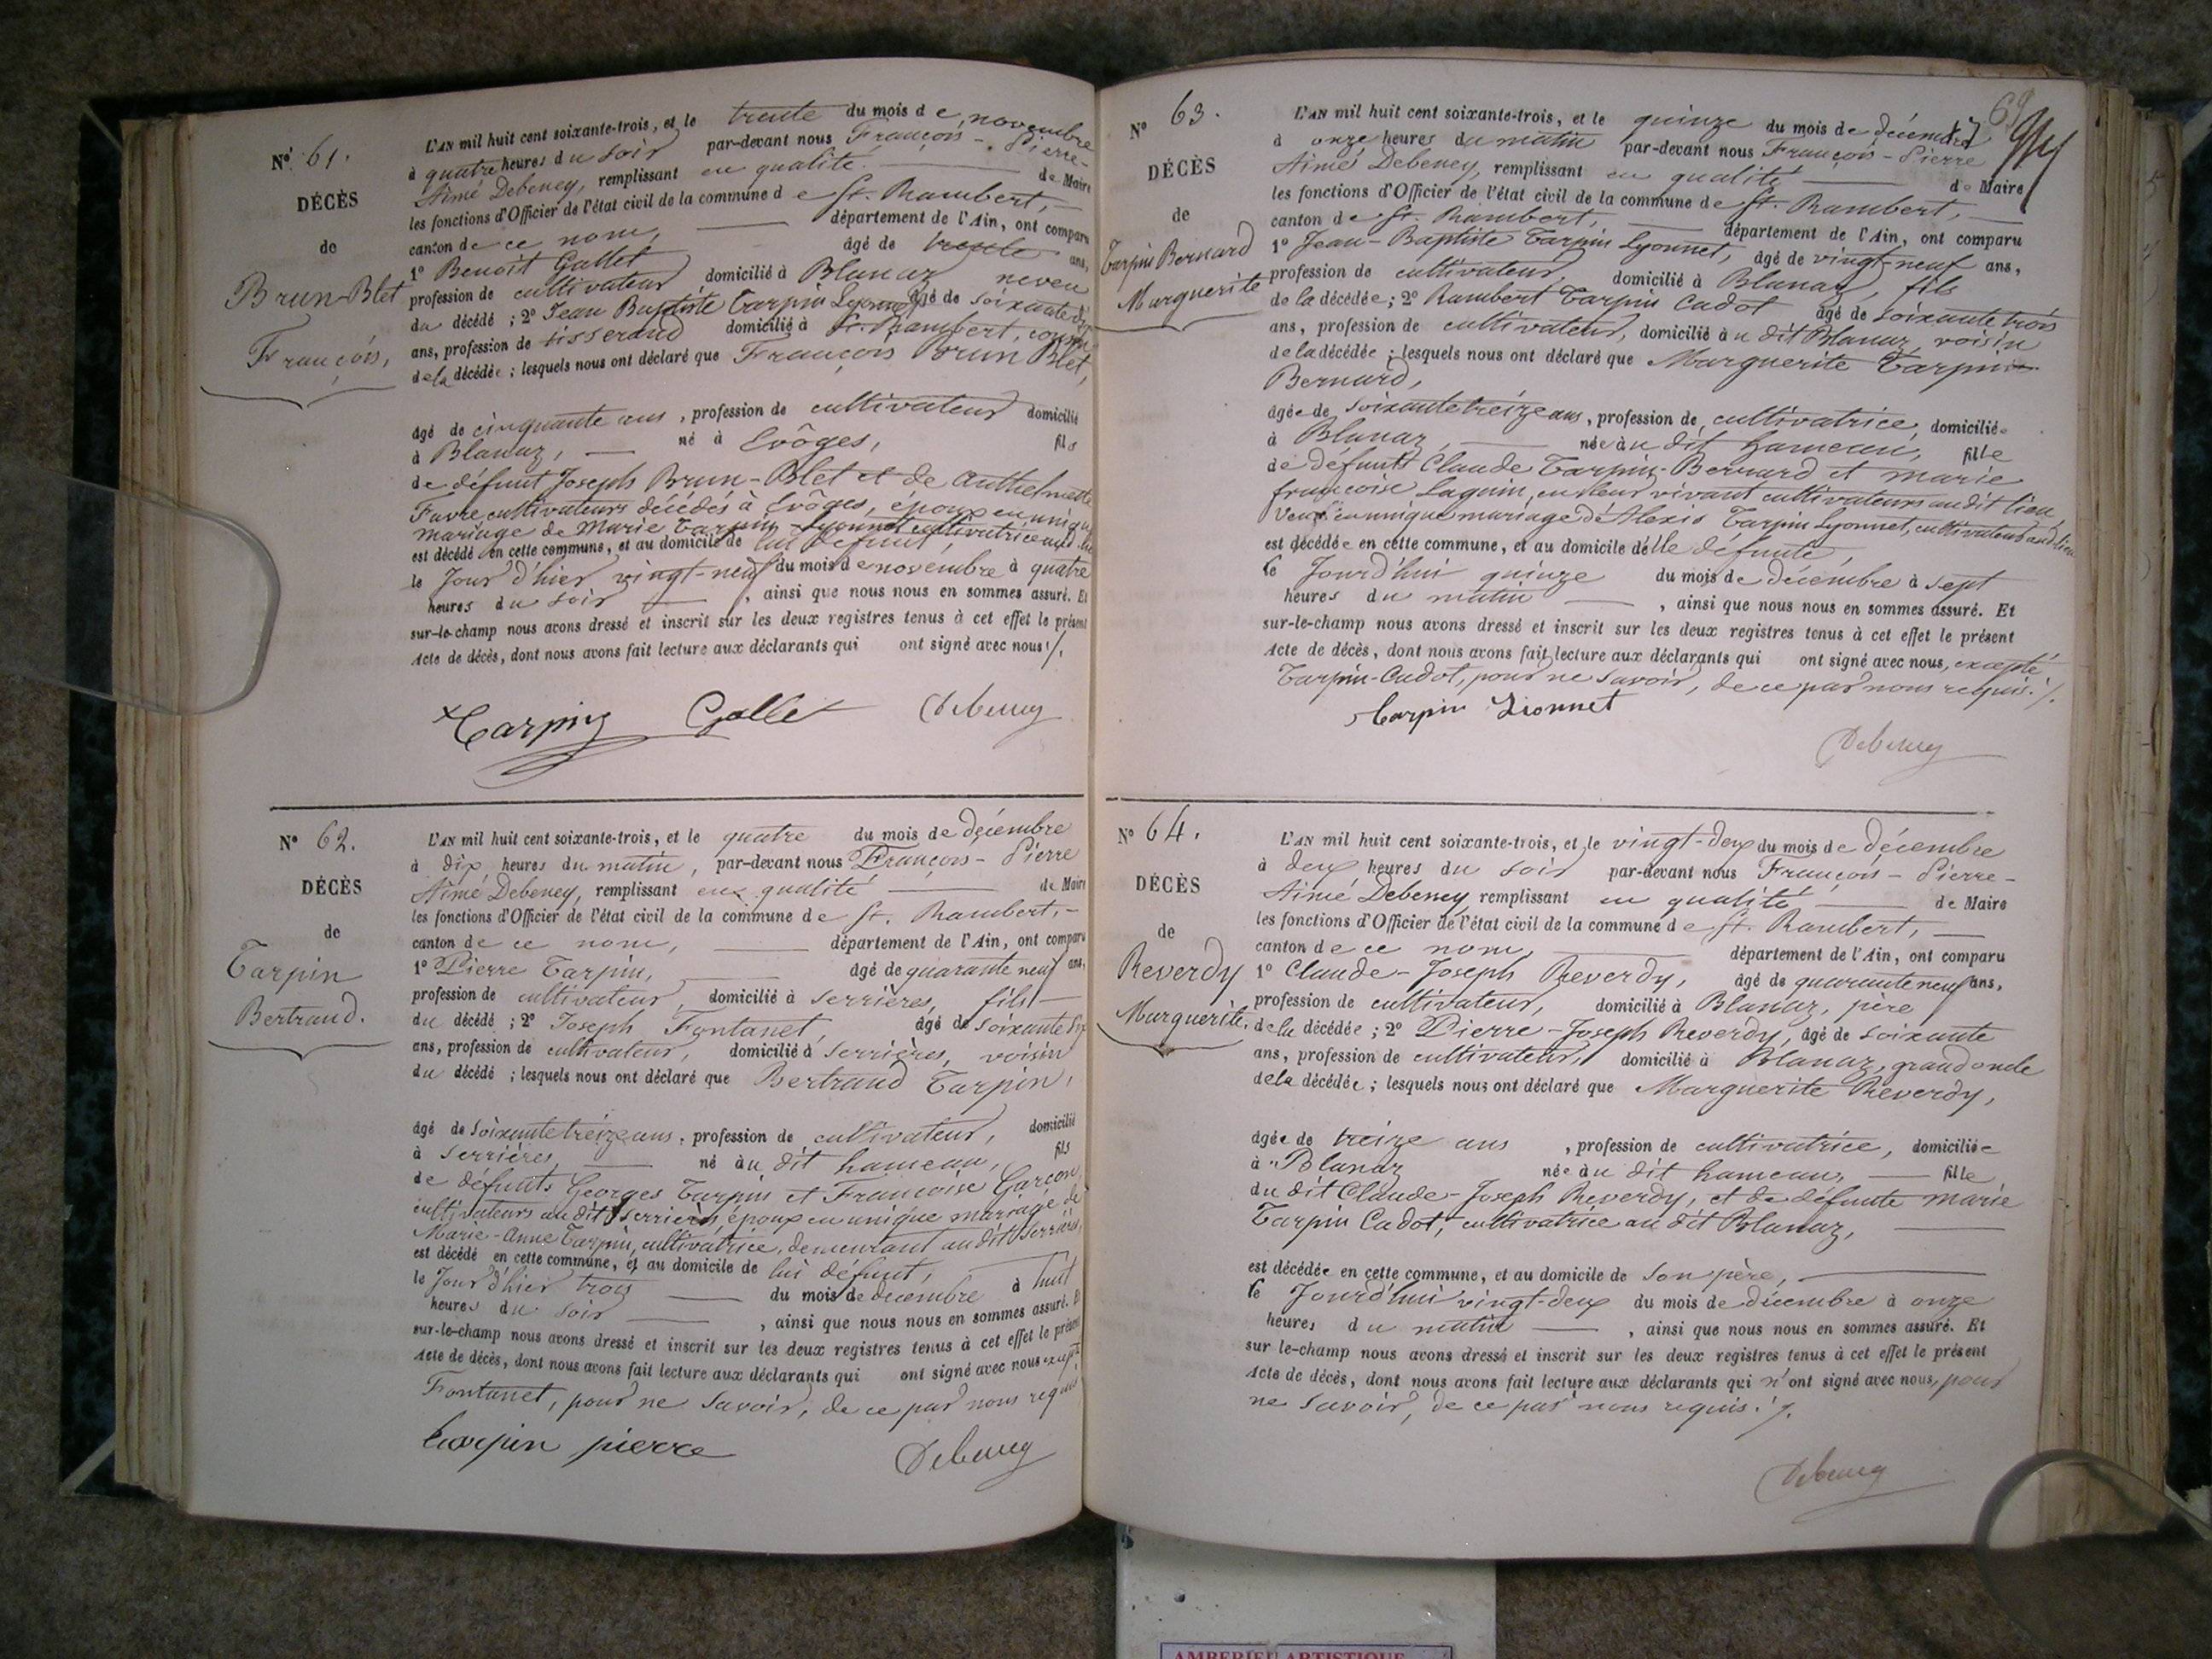 Nº 61.
DÉCÈS
de
Brun-Blet
François,
L'AN mil huit cent soixante-trois, et le trente du mois de novembre
à quatre heures du soir par-devant nous François-Pierre-
Aimé Debeney, remplissant en qualité de Maire
les fonctions d'Officier de l'état civil de la commune de St. Rambert,
canton de ce nom, département de l'Ain, ont comparu
1º Benoit Gallet âgé de trente ans,
profession de cultivateur domicilié à Blanaz neveu
du décédé ; 2º Jean Baptiste Tarpin Lyonnet âgé de soixante
ans, profession de tisserand domicilié à St. Rambert, cousin
de la décédée ; lesquels nous ont déclaré que François Brun Blet,
âgé de cinquante ans, profession de cultivateur domicilié
à Blanaz, né à Evôges, fils
de défunt Joseph Brun-Blet et de Anthelmette
Favre cultivateurs décédés à Evôges, époux en unique
mariage de Marie Tarpin Lyonnet cultivatrice aud. lieu
est décédé en cette commune, et au domicile de lui défunt,
le Jour d'hier vingt-neuf du mois de novembre à quatre
heures du soir, ainsi que nous nous en sommes assuré. Et
sur-le-champ nous avons dressé et inscrit sur les deux registres tenus à cet effet le présent
Acte de décès, dont nous avons fait lecture aux déclarants qui ont signé avec nous ./.
Tarpin Gallet Debeney
Nº 62.
DÉCÈS
de
Tarpin
Bertrand.
L'AN mil huit cent soixante-trois, et le quatre du mois de décembre
à dix heures du matin, par-devant nous François-Pierre
Aimé Debeney, remplissant en qualité de Maire
les fonctions d'Officier de l'état civil de la commune de St. Rambert,-
canton de ce nom, département de l'Ain, ont comparu
1º Pierre Tarpin, âgé de quarante neuf ans,
profession de cultivateur, domicilié à Serrières, fils
du décédé ; 2º Joseph Fontanet, âgé de soixante six
ans, profession de cultivateur, domicilié à Serrières, voisin
du décédé ; lesquels nous ont déclaré que Bertrand Tarpin,
âgé de soixante treize ans, profession de cultivateur, domicilié
à Serrières, né au dit hameau, fils
de défunts Georges Tarpin et Françoise Garcon,
cultivateurs au dit Serrières, époux en unique mariage de
Marie-Anne Tarpin, cultivatrice, demeurant au dit Serrières,
est décédé en cette commune, et au domicile de lui défunt,
le Jour d'hier trois du mois de décembre à huit
heures du soir, ainsi que nous nous en sommes assuré. Et
sur-le-champ nous avons dressé et inscrit sur les deux registres tenus à cet effet le présent
Acte de décès, dont nous avons fait lecture aux déclarants qui ont signé avec nous excepté
Fontanet, pour ne savoir, de ce par nous requis
tarpin pierre Debeney
Nº 63.
DÉCÈS
de
Tarpin Bernard
Marguerite
L'AN mil huit cent soixante-trois, et le quinze du mois de décembre
à onze heures du matin par-devant nous François-Pierre
Aimé Debeney, remplissant en qualité de Maire
les fonctions d'Officier de l'état civil de la commune de St. Rambert,
canton de St. Rambert, département de l'Ain, ont comparu
1º Jean-Baptiste Tarpin Lyonnet, âgé de vingt-neuf ans,
profession de cultivateur, domicilié à Blanaz, fils
de la décédée ; 2º Rambert Tarpin Cadot âgé de soixante trois
ans, profession de cultivateur, domicilié au dit Blanaz, voisin
de la décédée ; lesquels nous ont déclaré que Marguerite Tarpin
Bernard,
âgée de soixante treize ans, profession de cultivatrice, domiciliée
à Blanaz, née au dit hameau, fille
de défunts Claude Tarpin-Bernard et marie
françoise Laguin, en leur vivant cultivateurs au dit lieu,
Veuve en unique mariage de Alexis Tarpin Lyonnet, cultivateur aud. lieu
est décédée en cette commune, et au domicile d'elle défunte,
le Jourd'hui quinze du mois de décembre à sept
heures du matin, ainsi que nous nous en sommes assuré. Et
sur-le-champ nous avons dressé et inscrit sur les deux registres tenus à cet effet le présent
Acte de décès, dont nous avons fait lecture aux déclarants qui ont signé avec nous, excepté
Tarpin-Cadot, pour ne savoir, de ce par nous requis. ./.
tarpin Lionnet
Debeney
Nº 64.
DÉCÈS
de
Reverdy
Marguerite,
L'AN mil huit cent soixante-trois, et le vingt-deux du mois de décembre
à deux heures du soir par-devant nous François-Pierre-
Aimé Debeney remplissant en qualité de Maire
les fonctions d'Officier de l'état civil de la commune de St. Rambert,
canton de ce nom, département de l'Ain, ont comparu
1º Claude-Joseph Reverdy, âgé de quarante neuf ans,
profession de cultivateur, domicilié à Blanaz, père
de la décédée ; 2º Pierre-Joseph Reverdy, âgé de soixante
ans, profession de cultivateur, domicilié à Blanaz, grand oncle
de la décédée ; lesquels nous ont déclaré que Marguerite Reverdy,
âgée de treize ans, profession de cultivatrice, domiciliée
à Blanaz née au dit hameau, fille
du dit Claude-Joseph Reverdy, et de défunte marie
Tarpin Cadot, cultivatrice au dit Blanaz,
est décédée en cette commune, et au domicile de son père,
le Jourd'hui vingt-deux du mois de décembre à onze
heures du matin, ainsi que nous nous en sommes assuré. Et
sur le-champ nous avons dressé et inscrit sur les deux registres tenus à cet effet le présent
Acte de décès, dont nous avons fait lecture aux déclarants qui n'ont signé avec nous, pour
ne savoir, de ce par nous requis. ./.
Debeney
AMBERIEU ARTISTIQUE